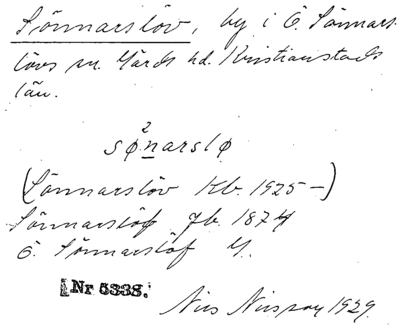 Sönnarslöv, by i Ö. Sönnars-
lövs sn. Gärds hd. Kristianstads
län.
2
sønarslø
(Sönnarslöv Kb. 1925–)
Sönnarslöf Jb. 1874
Ö. Sönnarslöf
[Nr 5338.]
Nils Nilsson 1929.